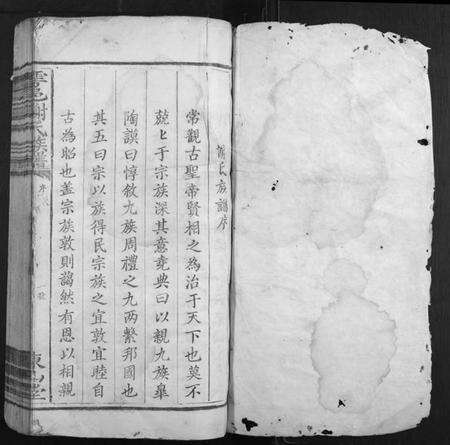 謝氏族譜序
常觀古聖帝賢相之為治于天下也莫不
兢兢于宗族深其意堯典曰以親九族皐
陶謨曰惇敘九族周禮之九兩繫邦國也
其五曰宗以族得民宗族之宜敦宜睦自
古為昭也蓋宗族敦則藹然有恩以相親
謝氏族譜
序